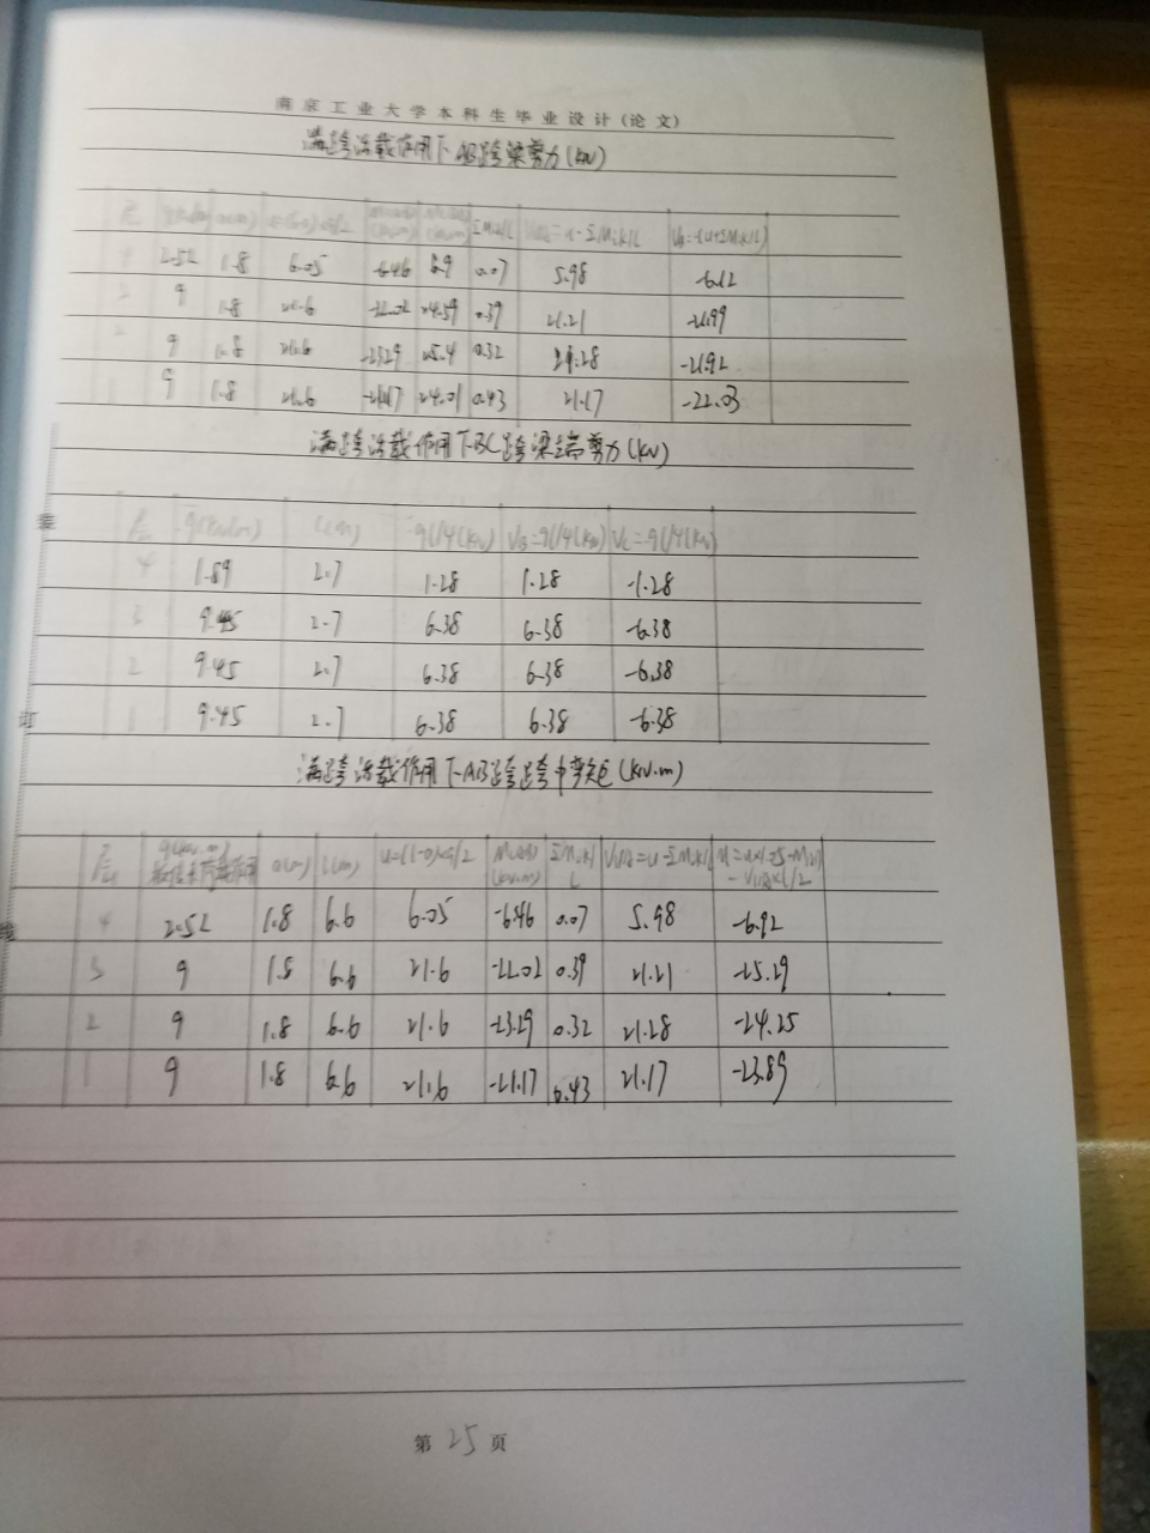 南京工业大学本科生毕业设计(论文)
满跨活载作用下AB跨梁剪力(kN)
层 a(m) u=(l-a)×q/2 ΣMik/L V1/A=u-ΣMik/L VB=-(u+ΣMik/L)
4 2.52 1.8 6.05 -6.46 6.9 0.07 5.98 -6.12
3 9 1.8 21.6 -22.02 24.59 0.39 21.21 -21.99
2 9 1.8 21.6 -23.29 25.4 0.32 21.28 -21.92
1 9 1.8 21.6 -21.17 24.01 0.43 21.17 -22.03
满跨活载作用下BC跨梁端剪力(kN)
层 q(kN/m) l(m) ql/4(kN) VB=ql/4(kN) VC=-ql/4(kN)
4 1.89 2.7 1.28 1.28 -1.28
装
3 9.45 2.7 6.38 6.38 -6.38
2 9.45 2.7 6.38 6.38 -6.38
订
1 9.45 2.7 6.38 6.38 -6.38
满跨活载作用下AB跨跨中弯矩(kN.m)
层 q(kN.m) a(m) l(m) u=(l-a)×q/2 (kN.m) ΣMik/L V1/A=u-ΣMik/L
线
4 2.52 1.8 6.6 6.05 -6.46 0.07 5.98 -6.92
3 9 1.8 6.6 21.6 -22.02 0.39 21.21 -25.29
2 9 1.8 6.6 21.6 -23.29 0.32 21.28 -24.25
1 9 1.8 6.6 21.6 -21.17 0.43 21.17 -23.89
第 25 页